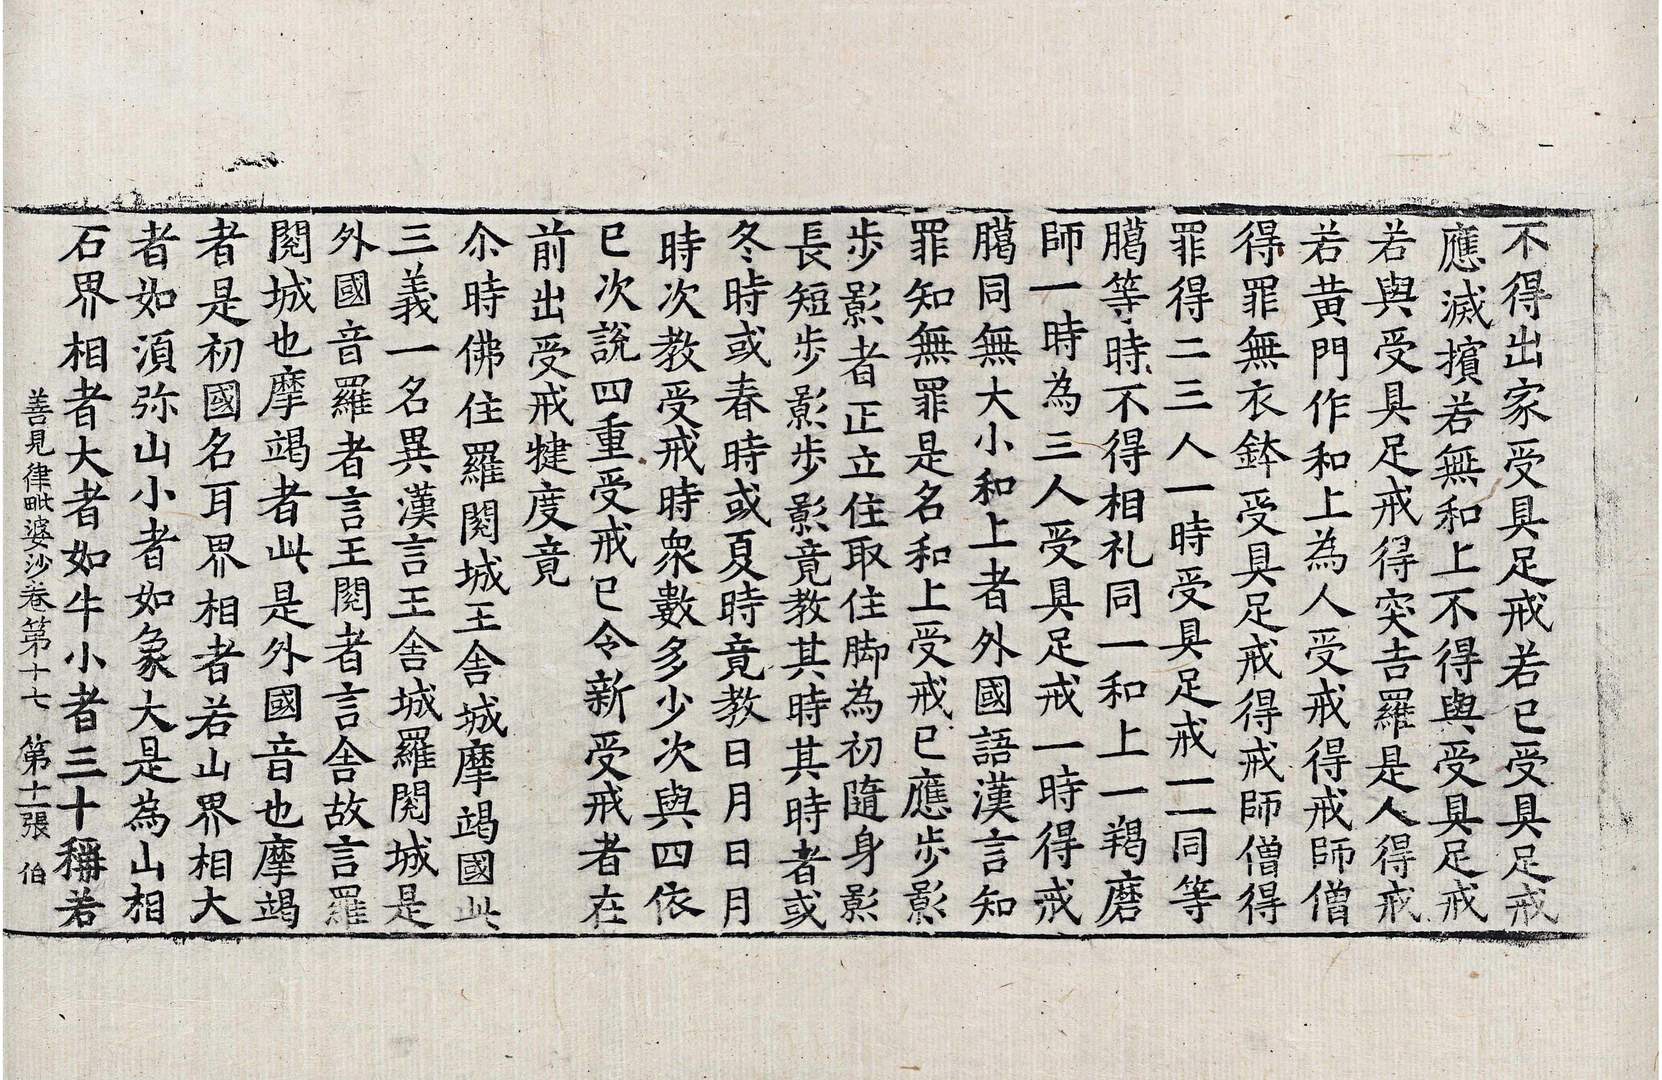 不得出家受具足戒若已受具足戒
應滅擯若無和上不得與受具足戒
若與受具足戒得突吉羅是人得戒
若黄門作和上為人受戒得戒師僧
得罪無衣鉢受具足戒得戒師僧得
罪得二三人一時受具足戒一一同等
臈等時不得相礼同一和上一羯磨
師一時為三人受具足戒一時得戒
臈同無大小和上者外國語漢言知
罪知無罪是名和上受戒已應步影
步影者正立住取住脚為初隨身影
長短步影步影竟教其時其時者或
冬時或春時或夏時竟教日月日月
時次教受戒時衆數多少次與四依
已次說四重受戒已令新受戒者在
前出受戒揵度竟
尒時佛住羅閱城王舍城摩竭國此
三義一名異漢言王舍城羅閱城是
外國音羅者言王閱者言舍故言羅
閱城也摩竭者此是外國音也摩竭
者是初國名耳界相者若山界相大
者如須弥山小者如象大是為山相
石界相者大者如牛小者三十稱若
善見律毗婆沙卷第十七 第十二張 伯